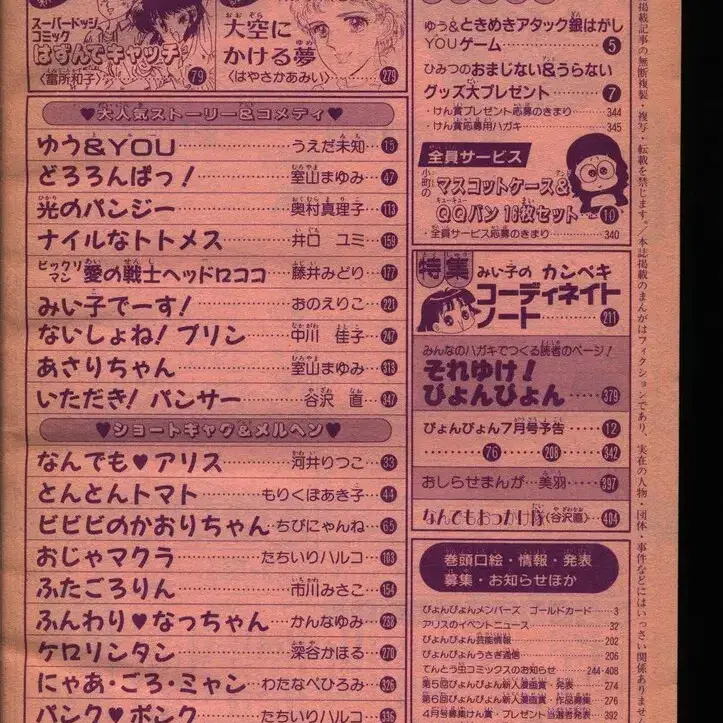 スーパードッジ
コミック
はずんでキャッチ
〈當所和子〉 79
大空に
かける夢
〈はやさかあみい〉 279
♥大人気ストーリー&コメディ♥
ゆう&YOU うえだ未知 15
どろろんぱっ! 室山まゆみ 47
光のパンジー 奥村真理子 113
ナイルなトトメス 井口 ユミ 159
ビックリマン 愛の戦士ヘッドロココ 藤井みどり 177
みい子でーす! おのえりこ 221
ないしょね!プリン 中川 佳子 247
あさりちゃん 室山まゆみ 313
いただき!パンサー 谷沢 直 347
♥ショートギャグ&メルヘン♥
なんでも♥アリス 河井りつこ 33
とんとんトマト もりくぼあき子 44
ビビビのかおりちゃん ちびにゃんね 65
おじゃマクラ たちいりハルコ 103
ふたごろりん 市川みさこ 154
ふんわり♥なっちゃん かんなゆみ 238
ケロリンタン 深谷かほる 270
にゃあ・ごろ・ミャン わたなべひろみ 326
パンク♥ポンク たちいりハルコ 336
ゆう&ときめきアタック銀はがし
YOUゲーム 5
ひみつのおまじない&うらない
グッズ大プレゼント 7
・けん賞プレゼント応募のきまり 344
・けん賞応募用ハガキ 345
全員サービス
小町の
マスコットケース&
QQバン 16枚セット 10
・全員サービス応募のきまり 340
特集 みい子の カンペキ
コーディネイト
ノート 211
みんなのハガキでつくる読者のページ!
それゆけ!
ぴょんぴょん 379
ぴょんぴょん7月号予告 12
76 208 342
おしらせまんが…美羽 397
なんでもおっかけ隊〈谷沢直〉 404
巻頭口絵・情報・発表
募集・お知らせほか
ぴょんぴょんメンバーズ ゴールドカード 3
アリスのイベントニュース 32
ぴょんぴょん芸能情報 202
ぴょんぴょんうさぎ通信 206
てんとう虫コミックスのお知らせ 244・408
第5回ぴょんぴょん新人漫画賞・発表 274
第6回ぴょんぴょん新人漫画賞・作品募集 276
4月号募集けん賞・プレゼント当選者発表 392
掲載記事の無断複製・複写・転載を禁じます。/本誌掲載のまんがはフィクションであり、実在の人物・団体・事件などにはいっさい関係ありませ